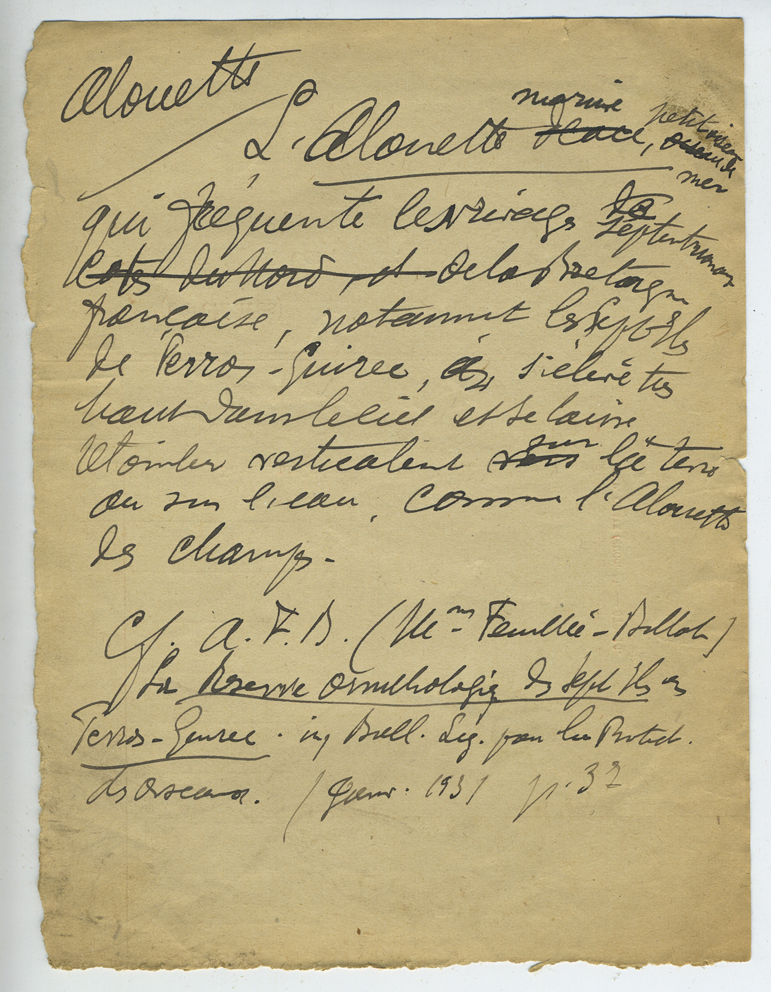 Alouette
L'Alouette marine, petit oiseau de mer
qui fréquente les rivages
septentrionaux
Cotes du Nord, et de la Bretagne
française, notamment les Sept Iles
de Perros-Guirec, s'élève très
haut dans le ciel et se laisse
retomber verticalement sur la terre
ou sur l'eau, comme l'Alouette
des champs.
Cf. A. F. B. (Mme Feuillée-Billot)
La Reserve ornithologiq des Sept Iles
Perros-Guirec. in, Bull. Lig. pour la Protect.
des oiseaux. (Janv. 1931 p. 32